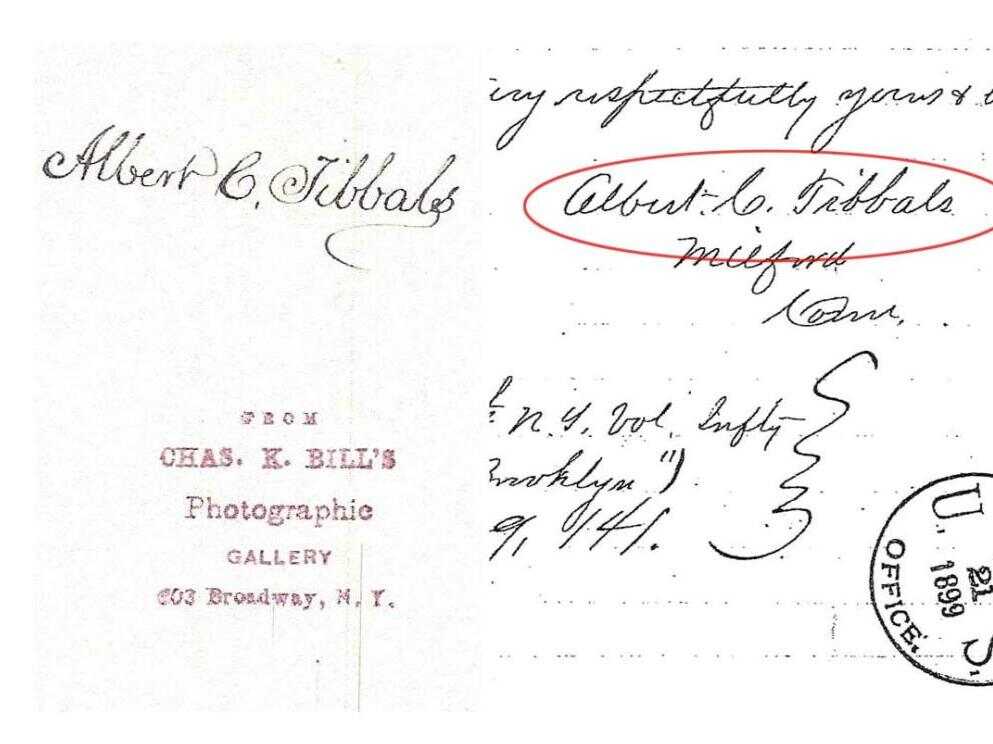 Albert C. Tibbals
FROM
CHAS. K. BILL'S
Photographic
GALLERY
603 Broadway, N. Y.
respectfully yours &
Albert. C. Tibbals
Milford
Conn.
N. Y. Vol. Infty
Brooklyn")
9, 141.
U. S.
21
1899
OFFICE.